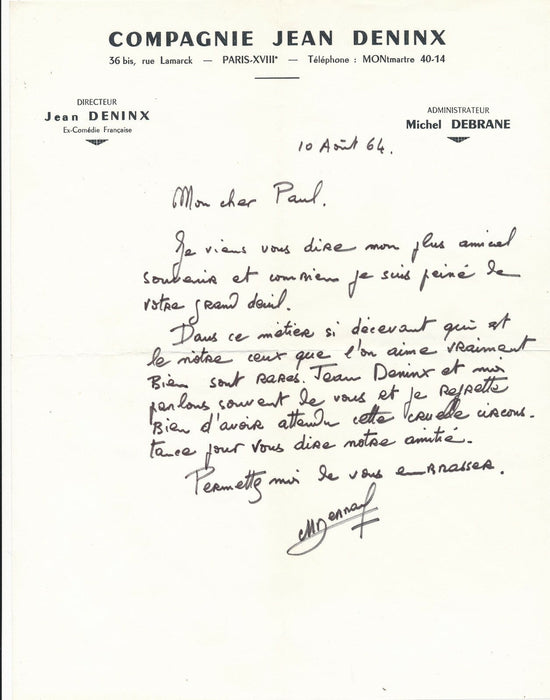 COMPAGNIE JEAN DENINX
36 bis, rue Lamarck — PARIS-XVIIIᵉ — Téléphone : MONtmartre 40-14
DIRECTEUR
Jean DENINX
Ex-Comédie Française
ADMINISTRATEUR
Michel DEBRANE
10 Août 64.
Mon cher Paul.
Je viens vous dire mon plus amical
souvenir et combien je suis peiné de
votre grand deuil.
Dans ce métier si décevant qui est
le nôtre ceux que l'on aime vraiment
Bien sont rares. Jean Deninx et moi
parlons souvent de vous et je regrette
Bien d'avoir attendu cette cruelle circons-
tance pour vous dire notre amitié.
Permettez moi de vous embrasser.